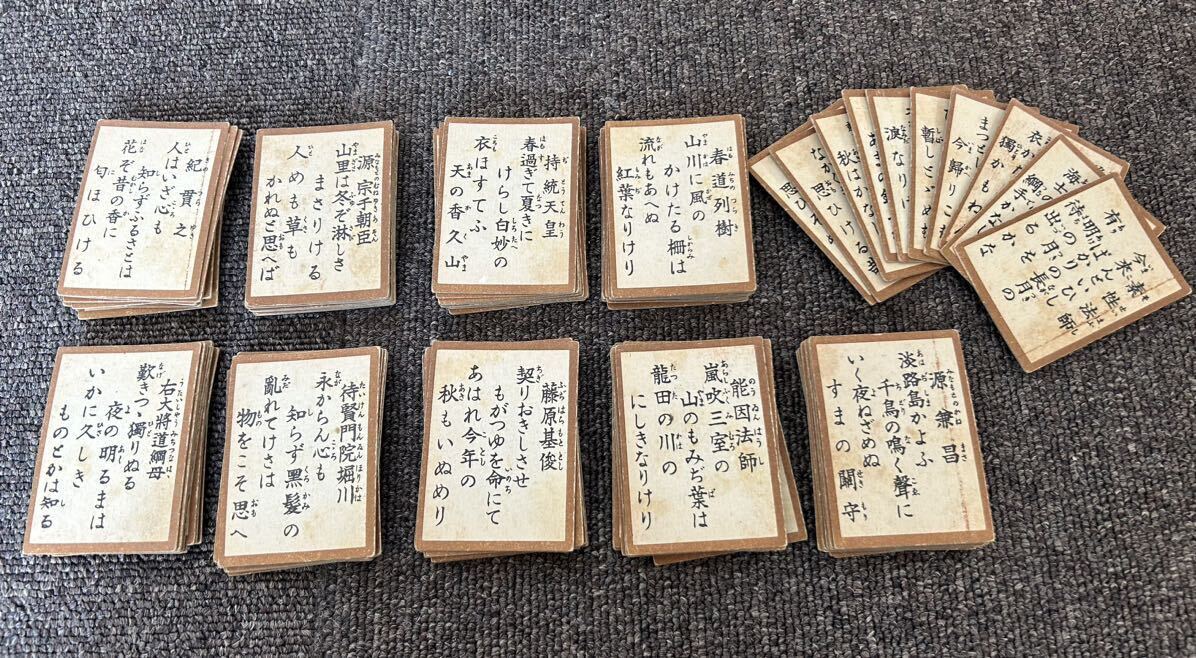 紀貫之
人はいざ心も
知らずふるさとは
花ぞ昔の香に
匂ほひける
源宗于朝臣
山里は冬ぞ淋しさ
まさりける
人めも草も
かれぬと思へば
持統天皇
春過ぎて夏きに
けらし白妙の
衣ほすてふ
天の香久山
春道列樹
山川に風の
かけたる柵は
流れもあへぬ
紅葉なりけり
素性法師
今来んといひし
ばかりに長月の
有明の月を
待出づるかな
右大將道綱母
歎きつゝ獨りぬる
夜の明るまは
いかに久しき
ものとかは知る
待賢門院堀川
永からん心も
知らず黒髪の
亂れてけさは
物をこそ思へ
藤原基俊
契りおきしさせ
もがつゆを命にて
あはれ今年の
秋もいぬめり
能因法師
嵐吹く三室の
山のもみぢ葉は
龍田の川の
にしきなりけり
源兼昌
淡路島かよふ
千鳥の鳴く聲に
いく夜ねざめぬ
すまの關守